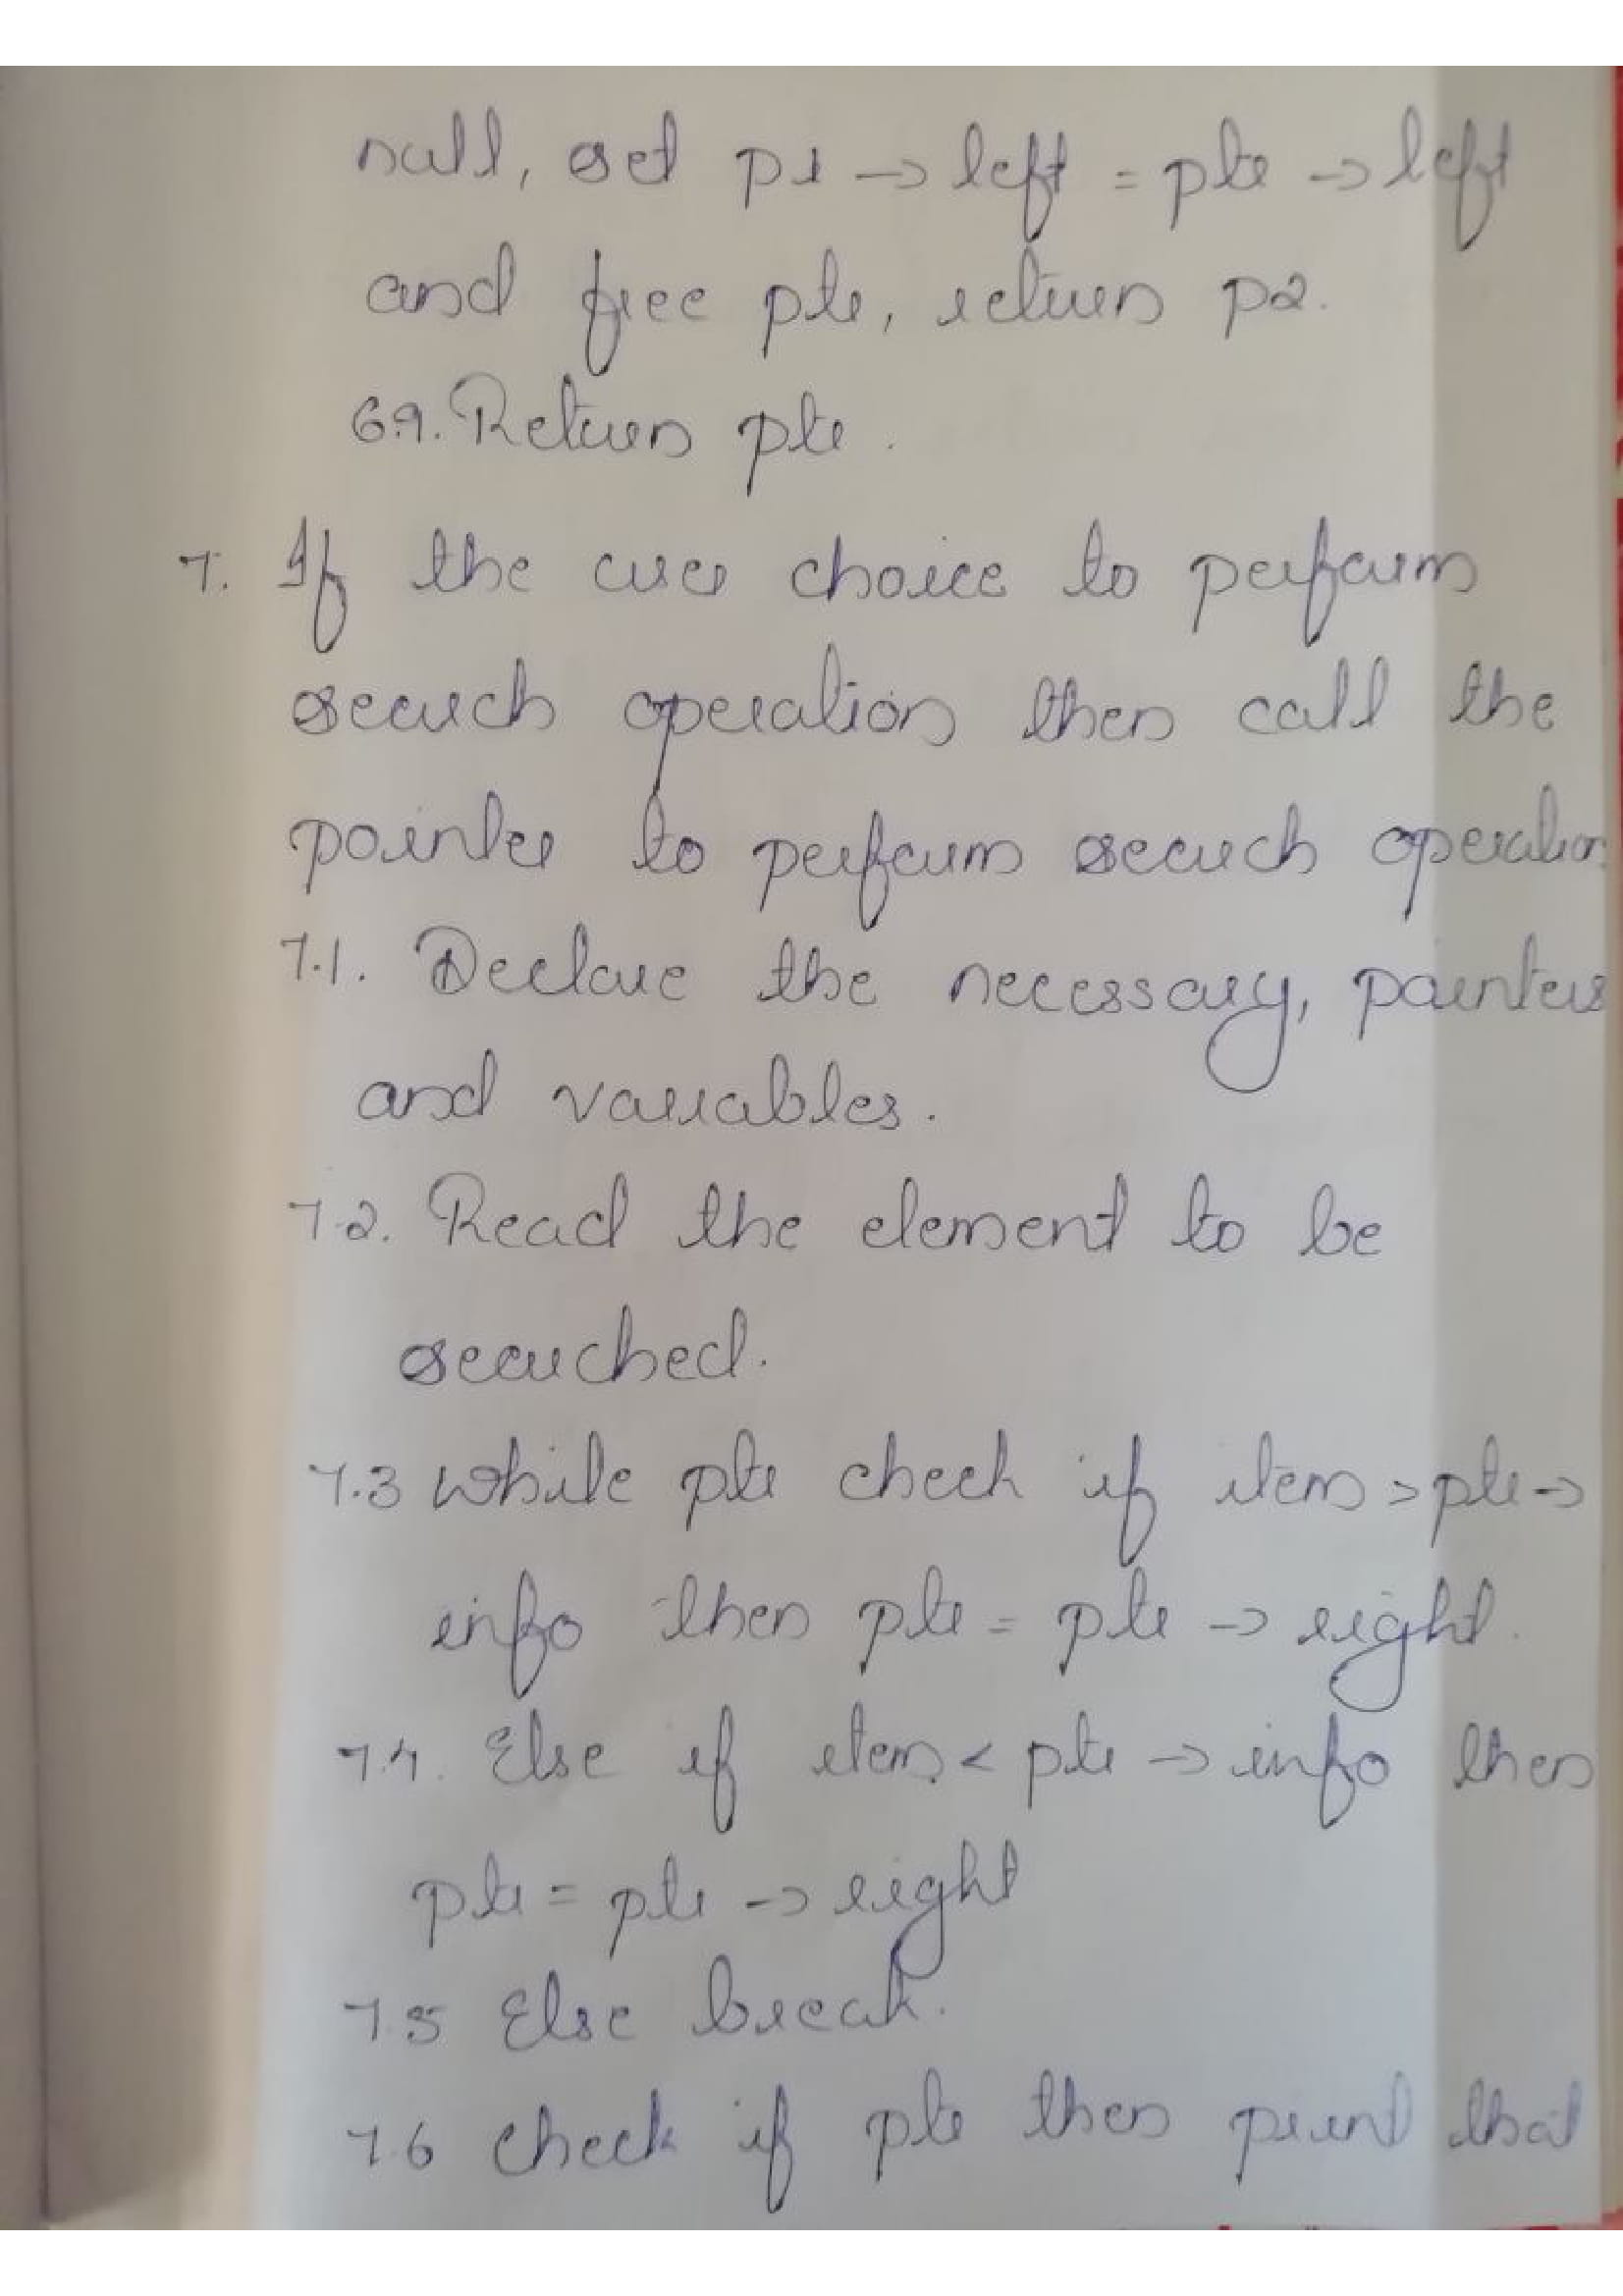 null, set p1 → left = ptr → left
and free ptr, return p2.
6.9. Return ptr.
7. If the user choice to perform
search operation then call the
pointer to perform search operation
7.1. Declare the necessary, pointers
and variables.
7.2. Read the element to be
searched.
7.3 while ptr check if item > ptr →
info then ptr = ptr → right.
7.4. Else if item < ptr → info then
ptr = ptr → right
7.5 Else break.
7.6 check if ptr then print that